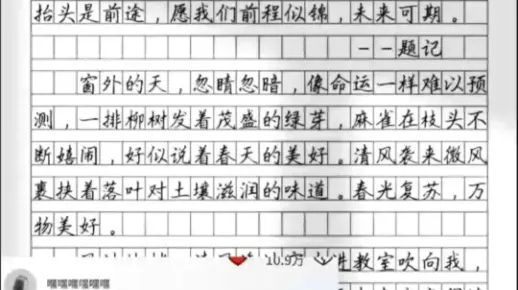 抬头是前途，愿我们前程似锦，未来可期。
——题记
窗外的天，忽晴忽暗，像命运一样难以预
测，一排柳树发着茂盛的绿芽，麻雀在枝头不
断嬉闹，好似说着春天的美好。清风袭来微风
裹挟着落叶对土壤滋润的味道。春光复苏，万
物美好。
进教室吹向我，
10.9万
嘿嘿嘿嘿嘿嘿